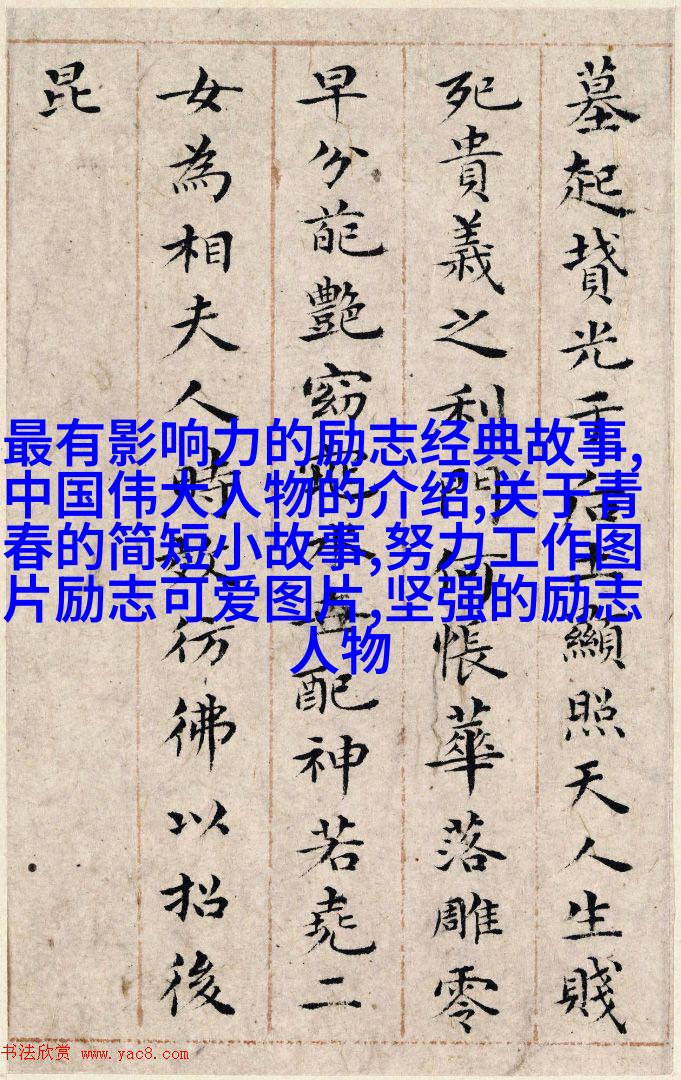 墓起墳光于后土顯照天人生賤
死貴義之利門何悵華落雕零
早分葩艷窈窕永世配神若堯二
女為相夫人時效彷彿以招後
昆
最有影响力的励志经典故事,
中国伟大人物的介绍,关于青
春的简短小故事,努力工作图
片励志可爱图片,坚强的励志
人物
书法欣赏 www.yac8.com